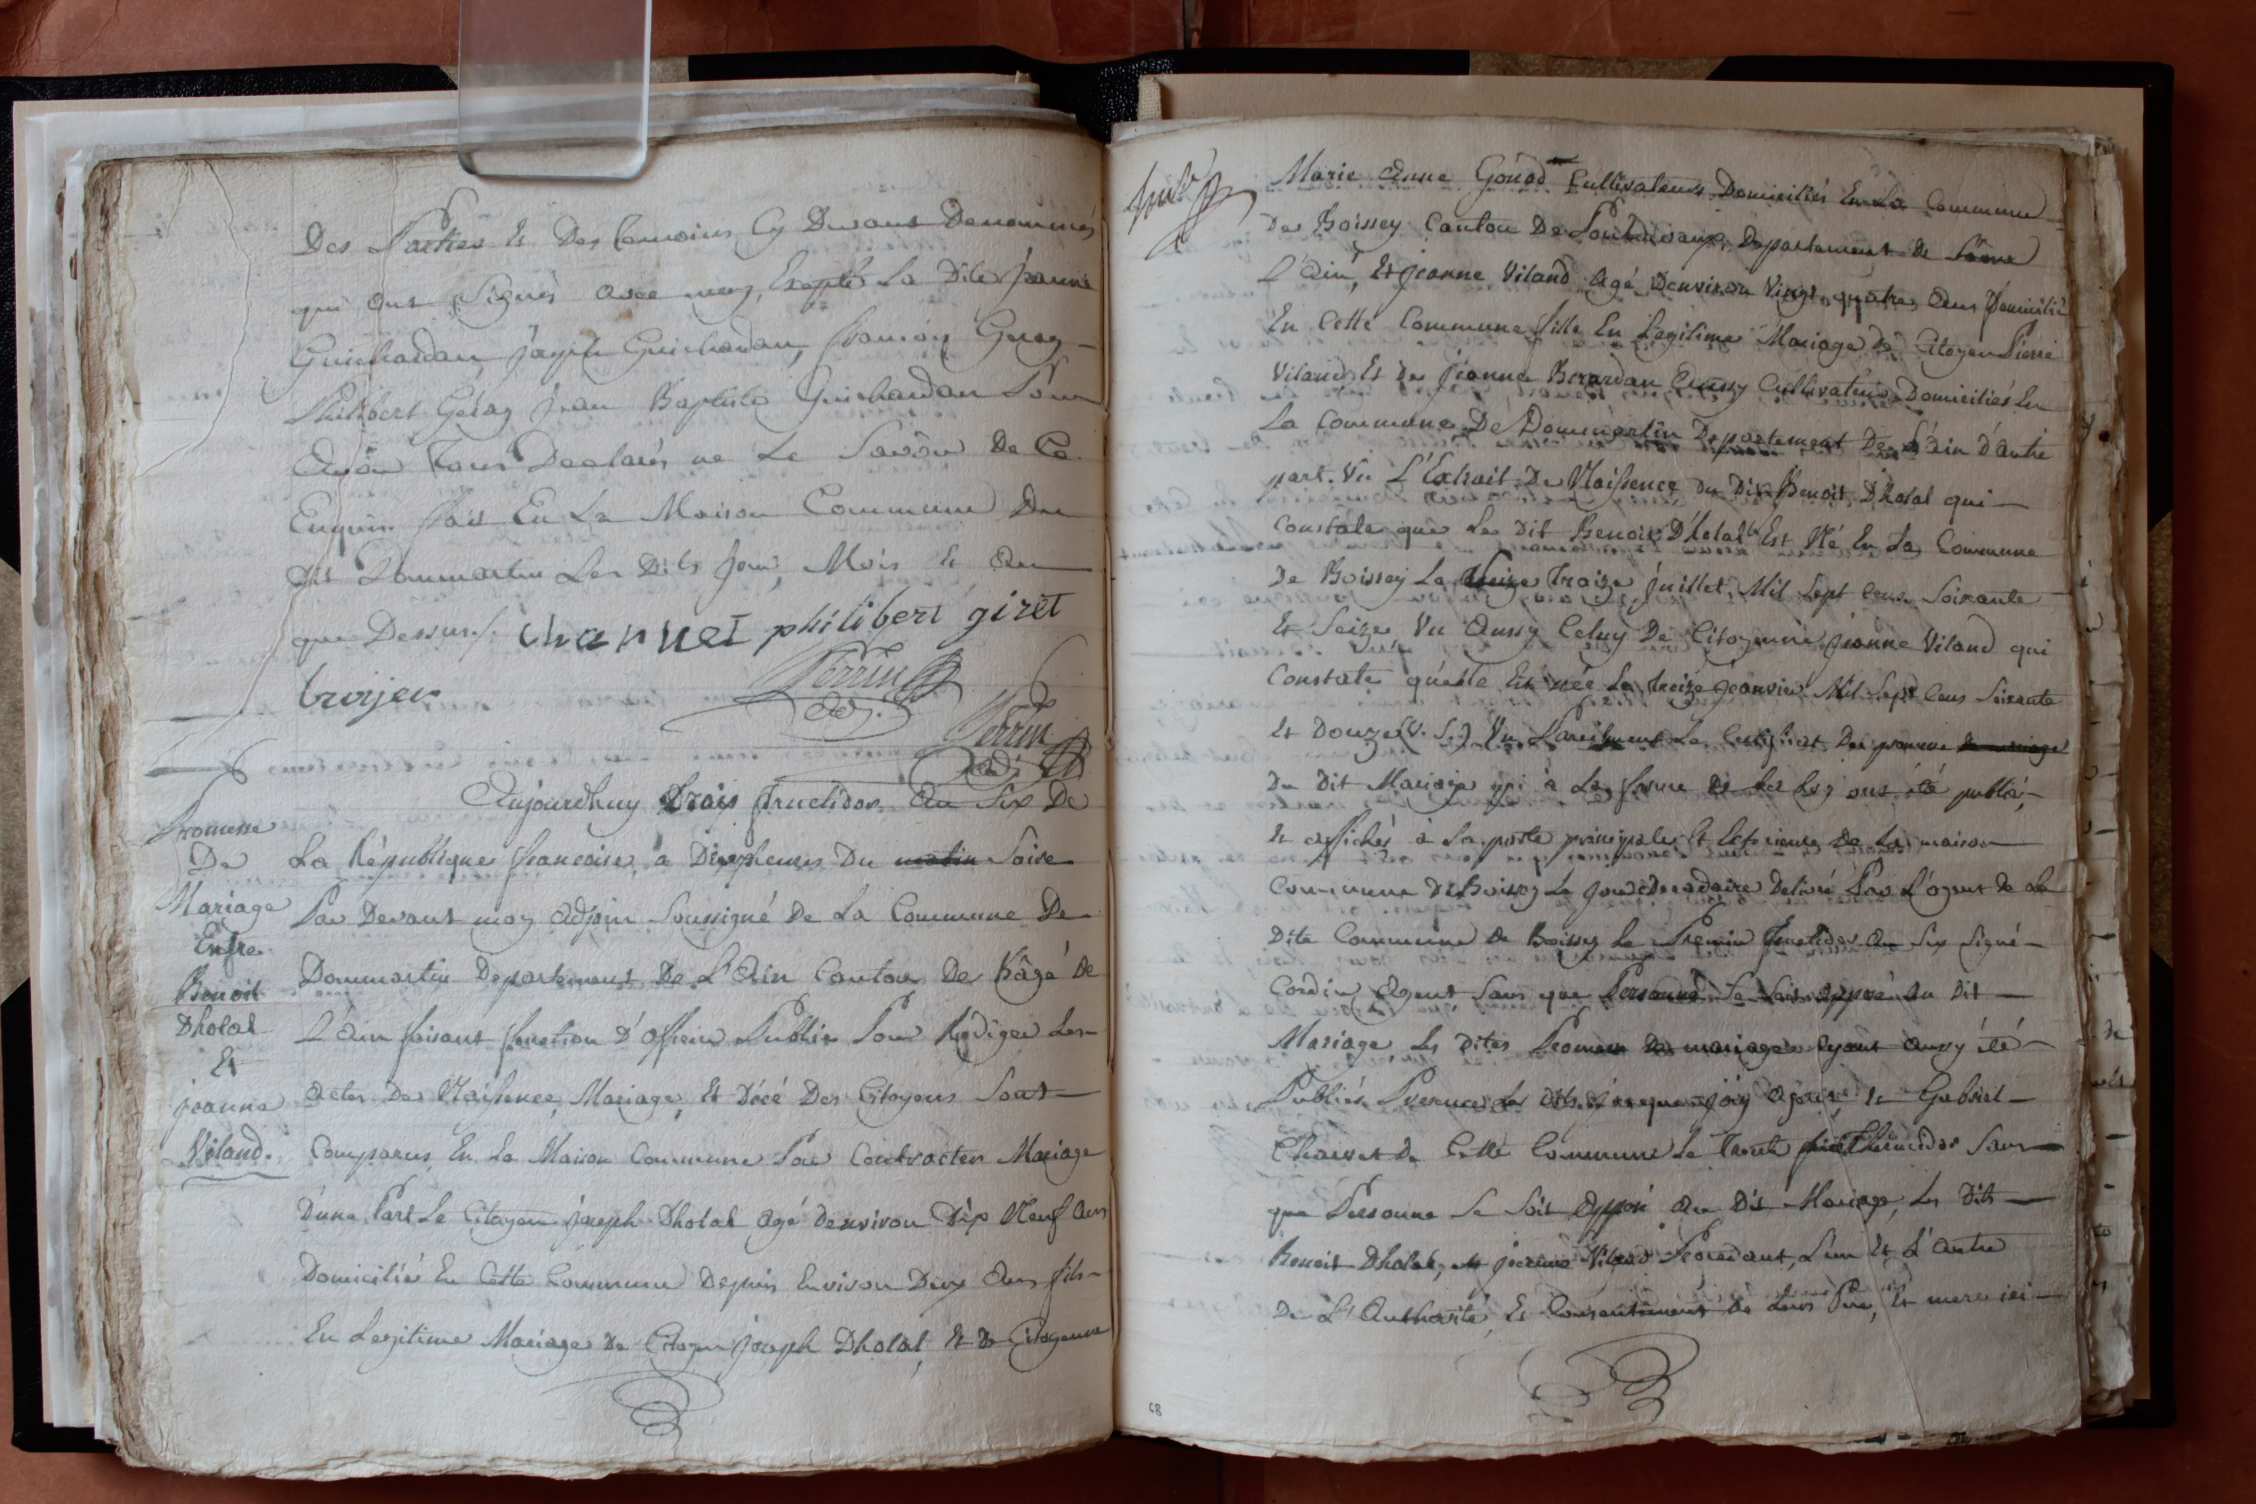 Des Parties Et Des temoins Cy Devant Denommés
qui ont Signés avec moy, Excepté La Dite jeanne
Guichardan, joseph Guichardan, françois Geray
Philibert Géray jean Baptiste Guichardan Pour
tous Declarés ne Le Savoir De Ce
Enquis. fait En La Maison Commune Du
dit Dommartin Les Dits jour, Mois Et an
que Dessus/. charnet philibert giret
broyer Perrin
adj.
Perrin
adj.
Promesse
De
Mariage
Entre
Benoit
Dholal
Et
jeanne
Viland.
Aujourdhuy trois fructidor an Six De
La République françoise, à Dixheures Du matin Soire
Par Devant moy adjoin Soussigné De La Commune De
Dommartin Departement De L'Ain Canton De Bâgé De
L'ain faisant fonction D'officier Public Pour Rediger Les
actes De Naissence, Mariage, Et Décé Des Citoyens Sont
Comparus En La Maison Commune Pour Contracter Mariage
D'une Part Le Citoyen joseph Dholal agé denviron Dix Neuf ans
Domicilié En Cette Commune Depuis Environ Deux ans fils
En Legitime Mariage De Citoyen joseph Dholal, Et De Citoyenne
Marie Anne Gonod Cultivateurs Domiciliés En La Commune
De Boissey Canton De Pontdevaux, Departement De
L'Ain, Et jeanne Viland agé Denviron Vingt quatre ans Domicilié
En Cette Commune fille En Legitime Mariage De Citoyen Pierre
Viland Et De jeanne Berardan Cultivateurs Domiciliés En
La Commune De Dommartin Departement De L'ain d'autre
part. Vu L'Extrait De Naissence du Dit Benoit D'holal qui
Constate que Le Dit Benoit D'holal Est Né En La Commune
De Boissey Le Treize juillet Mil Sept Cens Soixante
Et Seize, Vu Aussy Celuy De Citoyenne jeanne Viland qui
Constate qu'elle Est née Le treize janvier Mil Sept Cens Soixante
Et Douze (V. S.) Vu Pareilment Le Certificat De promesse de mariage
Du Dit Mariage qui à La forme De La Loy ont été publié,
Et affichés à La porte principale Et Exterieure De La maison
Commune De Boissey Le jour decadaire Delivré Par L'agent de la
Dite Commune De Boissey Le Premier fructidor an Six Signé
Cordier Agent Sans que Personne Se Soit opposé au Dit
Mariage Les Dites Promesses De mariage Ayant aussy été
Publiés Presence Les Dits Et Gabriel
Charvet De Cette Commune Le Trente Thermidor Sans
que Personne Se Soit Opposé au Dit Mariage, Les Dits
Benoit Dholal, et jeanne Viland Procedant, L'un Et L'autre
De L'Authorité, Et Consentement De Leurs Pere, Et mere ici
68